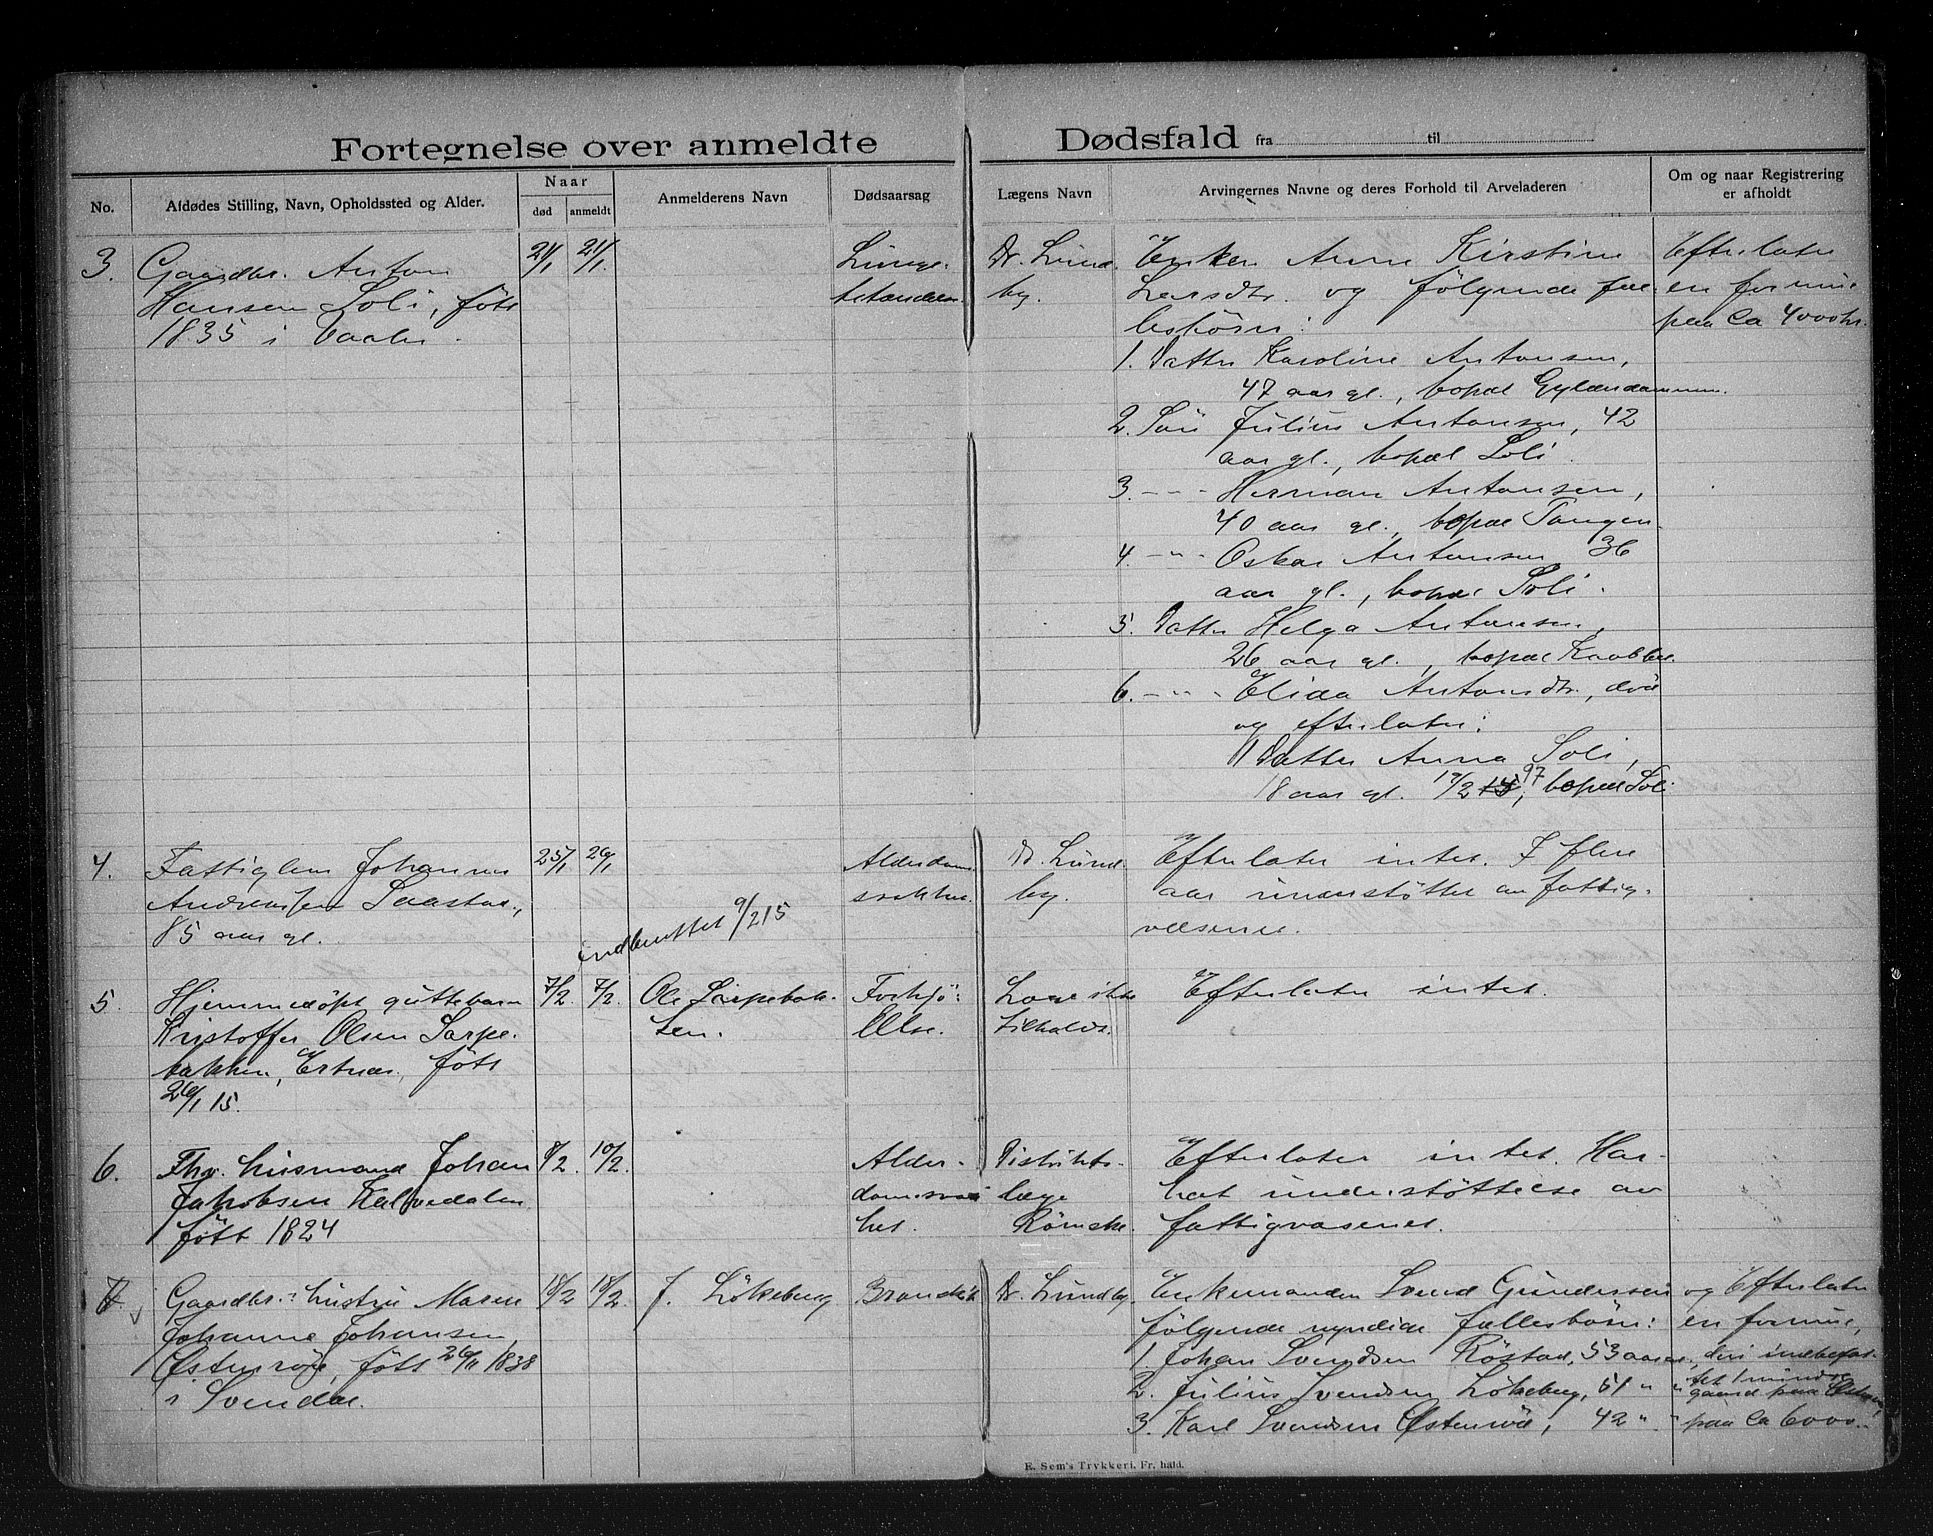 Fortegnelse over anmeldte Dødsfald fra til
No.
Afdødes Stilling, Navn, Opholdssted og Alder.
Naar
død
anmeldt
Anmelderens Navn
Dødsaarsag
Lægens Navn
Arvingernes Navne og deres Forhold til Arveladeren
Om og naar Registrering
er afholdt
3.
Gaardbr. Anton
Hansen Soli, føtt
1835 i Vaaler.
21/1
21/1.
Lunge-
betændelse
Dr. Lund-
by.
Enken Anne Kirstine
Larsdtr. og følgende fæl-
lesbörn:
1. Datter Karoline Antonsen,
47 aar gl., bopæl Gylderdammen.
2. Sön Julius Antonsen, 42
aar gl., bopæl Soli.
3. -"- Herman Antonsen,
40 aar gl., bopæl Tangen.
4. -"- Oskar Antonsen 36
aar gl., bopæl Soli.
5. Datter Helga Antonsen,
26 aar gl., bopæl
6. -"- Elida Antonsdtr., död
og efterlater:
1 Datter Anna Soli,
18 aar gl. 97, bopæl Soli
Efterlater
en formue
paa ca 4000 kr.
4.
Fattiglem Johannes
Andreassen Saastad,
85 aar gl.
25/1
26/1
indberettet 9/2 15
Alderdoms-
svakhet.
Dr. Lund-
by.
Efterlater intet. I flere
aar understöttet av fattig-
væsenet.
5.
Hjemmedöpt guttebarn
Kristoffer Olsen Sarpe-
bakken, Ertnes, födt
26/1 15.
7/2.
7/2.
Ole Sarpebak-
ken.
Forkjö-
lelse.
Læge ikke
tilkaldt.
Efterlater intet.
6.
Fhv. husmand Johan
Jakobsen Kalvedalen
född 1824
8/2
10/2.
Alder-
domssvak-
het.
Distrikts-
læge
Römcke.
Efterlater intet. Har
hat understöttelse av
fattigvæsenet.
7.
Gaardbr. hustru Maren
Johanne Johansen
Østenröd, född 26/11 1838
i Svendal.
18/2
18/2.
J. Lökeberg
Bronchit
Dr. Lundby.
Enkemanden Svend Gundersen og
følgende myndige fællesbörn:
1. Johan Svendsen Röstad, 53 aar
2. Julius Svendsen Lökeberg, 51 " "
3. Karl Svendsen Østenröd, 42 " "
Efterlater
en formue,
deri indbefat-
tet 1 mindre
gaard paa
paa ca 6000.-
E. Sem's Trykkeri, Fr.hald.